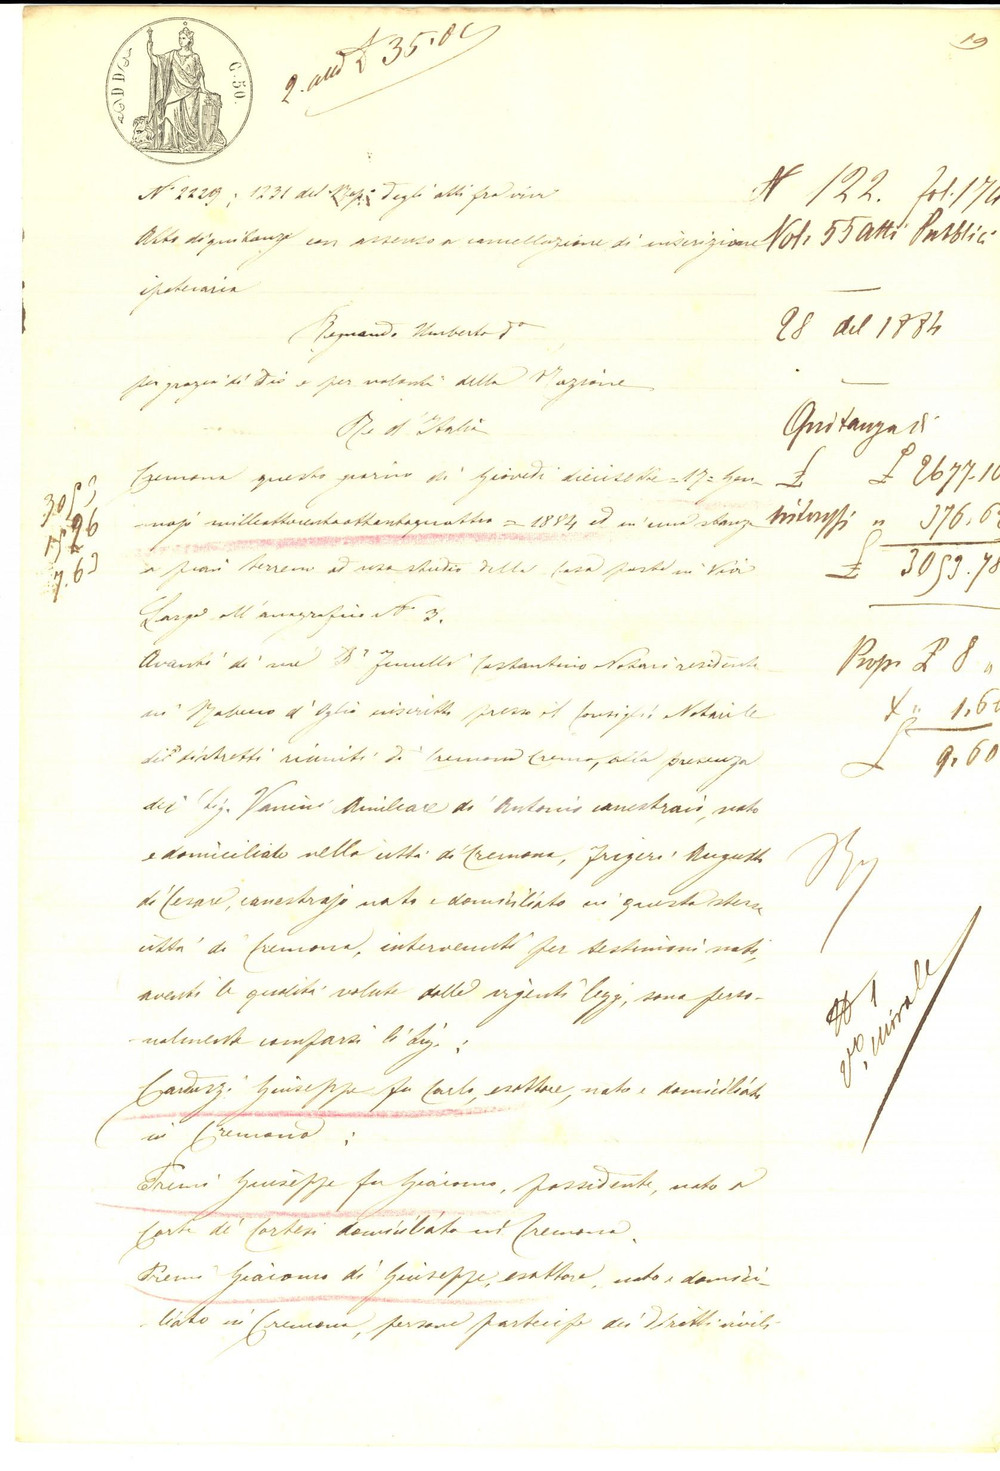 DD
C. 50.
19
2. and £ 35.06
N° 2229; 1231 del Rep. degli atti fra vivi
Atto di quitanza con assenso a cancellazione di inscrizione
ipotecaria
Regnando Umberto I°
per grazia di Dio e per volontà della Nazione
Re d'Italia
Cremona questo giorno di Giovedì diciasette = 17 = Gen-
najo milleottocentoottantaquattro = 1884 ed in una stanza
a pian terreno ad uso studio della casa posta in Via
Largo all'anagrafico N° 3.
Avanti di me Dr. Costantino Notaio residente
in d'Oglio inscritto presso il Consiglio Notarile
dei distretti riuniti di Cremona Crema, alla presenza
dei Sig. Vanini Amilcare di Antonio canestraio, nato
e domiciliato nella città di Cremona, Frigeri Augusto
di Cesare, canestrajo nato e domiciliato in questa stessa
città di Cremona, intervenuti per testimoni noti,
aventi le qualità volute dalle vigenti leggi, sono perso-
nalmente comparsi li Sig.:
Carduzzi Giuseppe fu Carlo, esattore, nato e domiciliato
in Cremona;
Premi Giuseppe fu Giacomo, possidente, nato a
Corte de' Cortesi domiciliato in Cremona,
Premi Giacomo di Giuseppe, esattore, nato e domici-
liato in Cremona, persone partecipi dei diritti civili
N 122. fol. 170
Vol. 55 Atti Pubblici
28 del 1884
Quitanza di
£ £ 2677.10
interessi " 376.68
£ 3053.78
Prop. £ 8 "
1.60
£ 9.60
3053
1526
7.63
N° 1